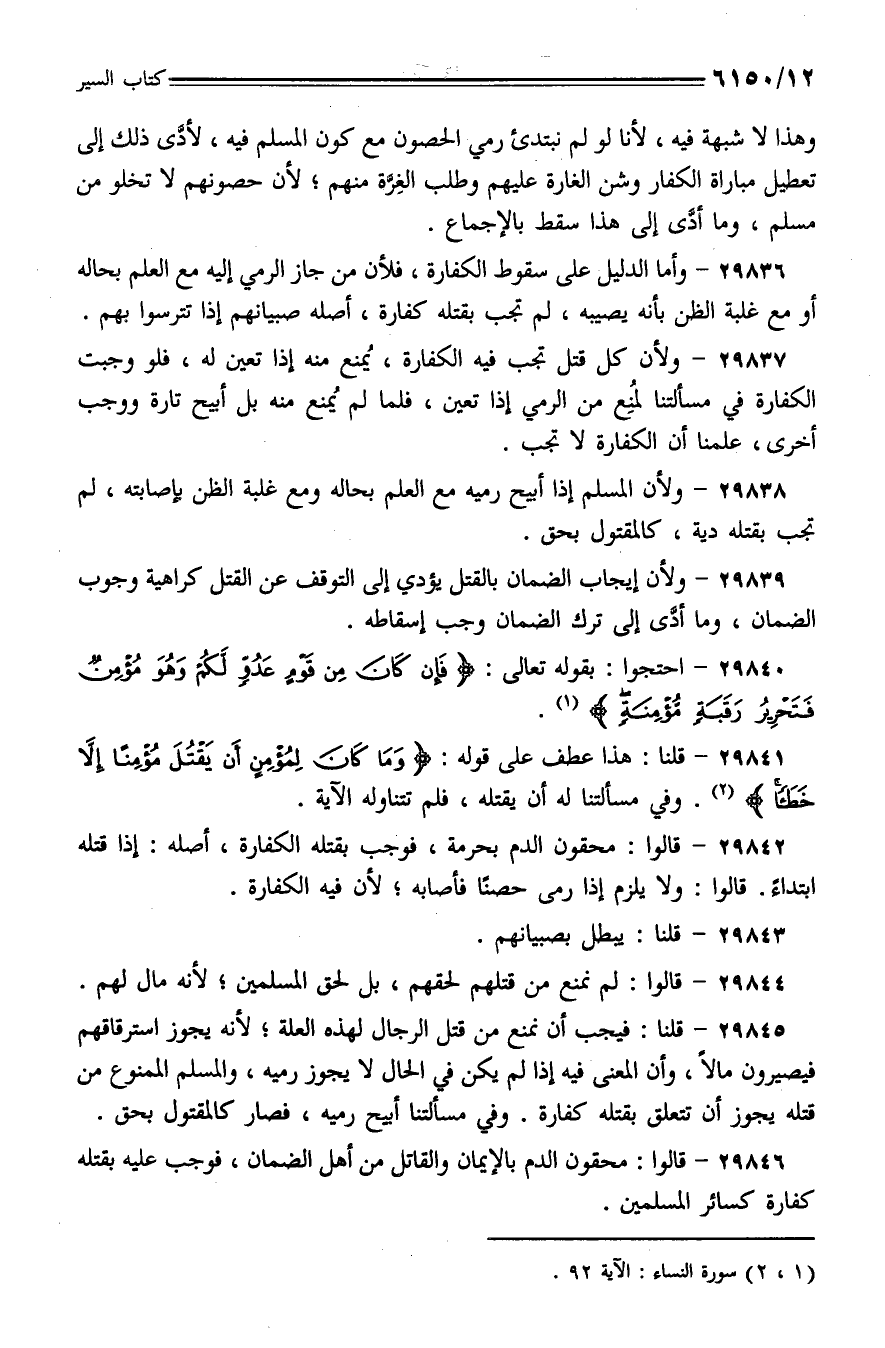 ٦١٥٠/١٢ كتاب السير
وهذا لا شبهة فيه ، لأنا لو لم نبتدئ رمي الحصون مع كون المسلم فيه ، لأدَّى ذلك إلى
تعطيل مباراة الكفار وشن الغارة عليهم وطلب الغِرَّة منهم ؛ لأن حصونهم لا تخلو من
مسلم ، وما أدَّى إلى هذا سقط بالإجماع .
٢٩٨٣٦ - وأما الدليل على سقوط الكفارة ، فلأن من جاز الرمي إليه مع العلم بحاله
أو مع غلبة الظن بأنه يصيبه ، لم تجب بقتله كفارة ، أصله صبيانهم إذا تترسوا بهم .
٢٩٨٣٧ - ولأن كل قتل تجب فيه الكفارة ، يُمنع منه إذا تعين له ، فلو وجبت
الكفارة في مسألتنا لمُنِع من الرمي إذا تعين ، فلما لم يُمنع منه بل أبيح تارة ووجب
أخرى ، علمنا أن الكفارة لا تجب .
٢٩٨٣٨ - ولأن المسلم إذا أبيح رميه مع العلم بحاله ومع غلبة الظن بإصابته ، لم
تجب بقتله دية ، كالمقتول بحق .
٢٩٨٣٩ - ولأن إيجاب الضمان بالقتل يؤدي إلى التوقف عن القتل كراهية وجوب
الضمان ، وما أدَّى إلى ترك الضمان وجب إسقاطه .
٢٩٨٤٠ - احتجوا : بقوله تعالى : ﴿ فَإِن كَانَ مِن قَوْمٍ عَدُوٍّ لَّكُمْ وَهُوَ مُؤْمِنٌ
فَتَحْرِيرُ رَقَبَةٍ مُّؤْمِنَةٍ ﴾ (١) .
٢٩٨٤١ - قلنا : هذا عطف على قوله : ﴿ وَمَا كَانَ لِمُؤْمِنٍ أَن يَقْتُلَ مُؤْمِنًا إِلَّا
خَطَـًٔا ﴾ (٢) . وفي مسألتنا له أن يقتله ، فلم تتناوله الآية .
٢٩٨٤٢ - قالوا : محقون الدم بحرمة ، فوجب بقتله الكفارة ، أصله : إذا قتله
ابتداءً . قالوا : ولا يلزم إذا رمى حصنًا فأصابه ؛ لأن فيه الكفارة .
٢٩٨٤٣ - قلنا : يبطل بصبيانهم .
٢٩٨٤٤ - قالوا : لم نمنع من قتلهم لحقهم ، بل لحق المسلمين ؛ لأنه مال لهم .
٢٩٨٤٥ - قلنا : فيجب أن نمنع من قتل الرجال لهذه العلة ؛ لأنه يجوز استرقاقهم
فيصيرون مالاً ، وأن المعنى فيه إذا لم يكن في الحال لا يجوز رميه ، والمسلم الممنوع من
قتله يجوز أن تتعلق بقتله كفارة . وفي مسألتنا أبيح رميه ، فصار كالمقتول بحق .
٢٩٨٤٦ - قالوا : محقون الدم بالإيمان والقاتل من أهل الضمان ، فوجب عليه بقتله
كفارة كسائر المسلمين .
(١ ، ٢) سورة النساء : الآية ٩٢ .